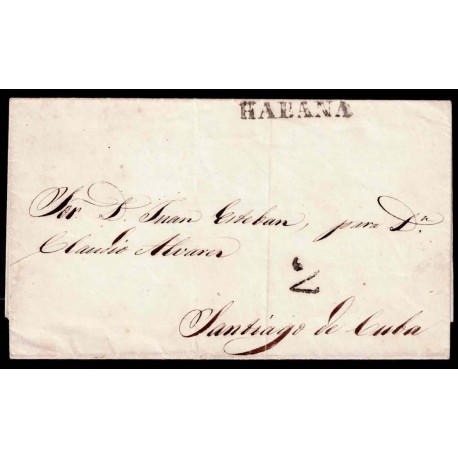 HABANA
Sor. D. Juan Esteban, para Dn.
Claudio Alvarez
2
Santiago de Cuba